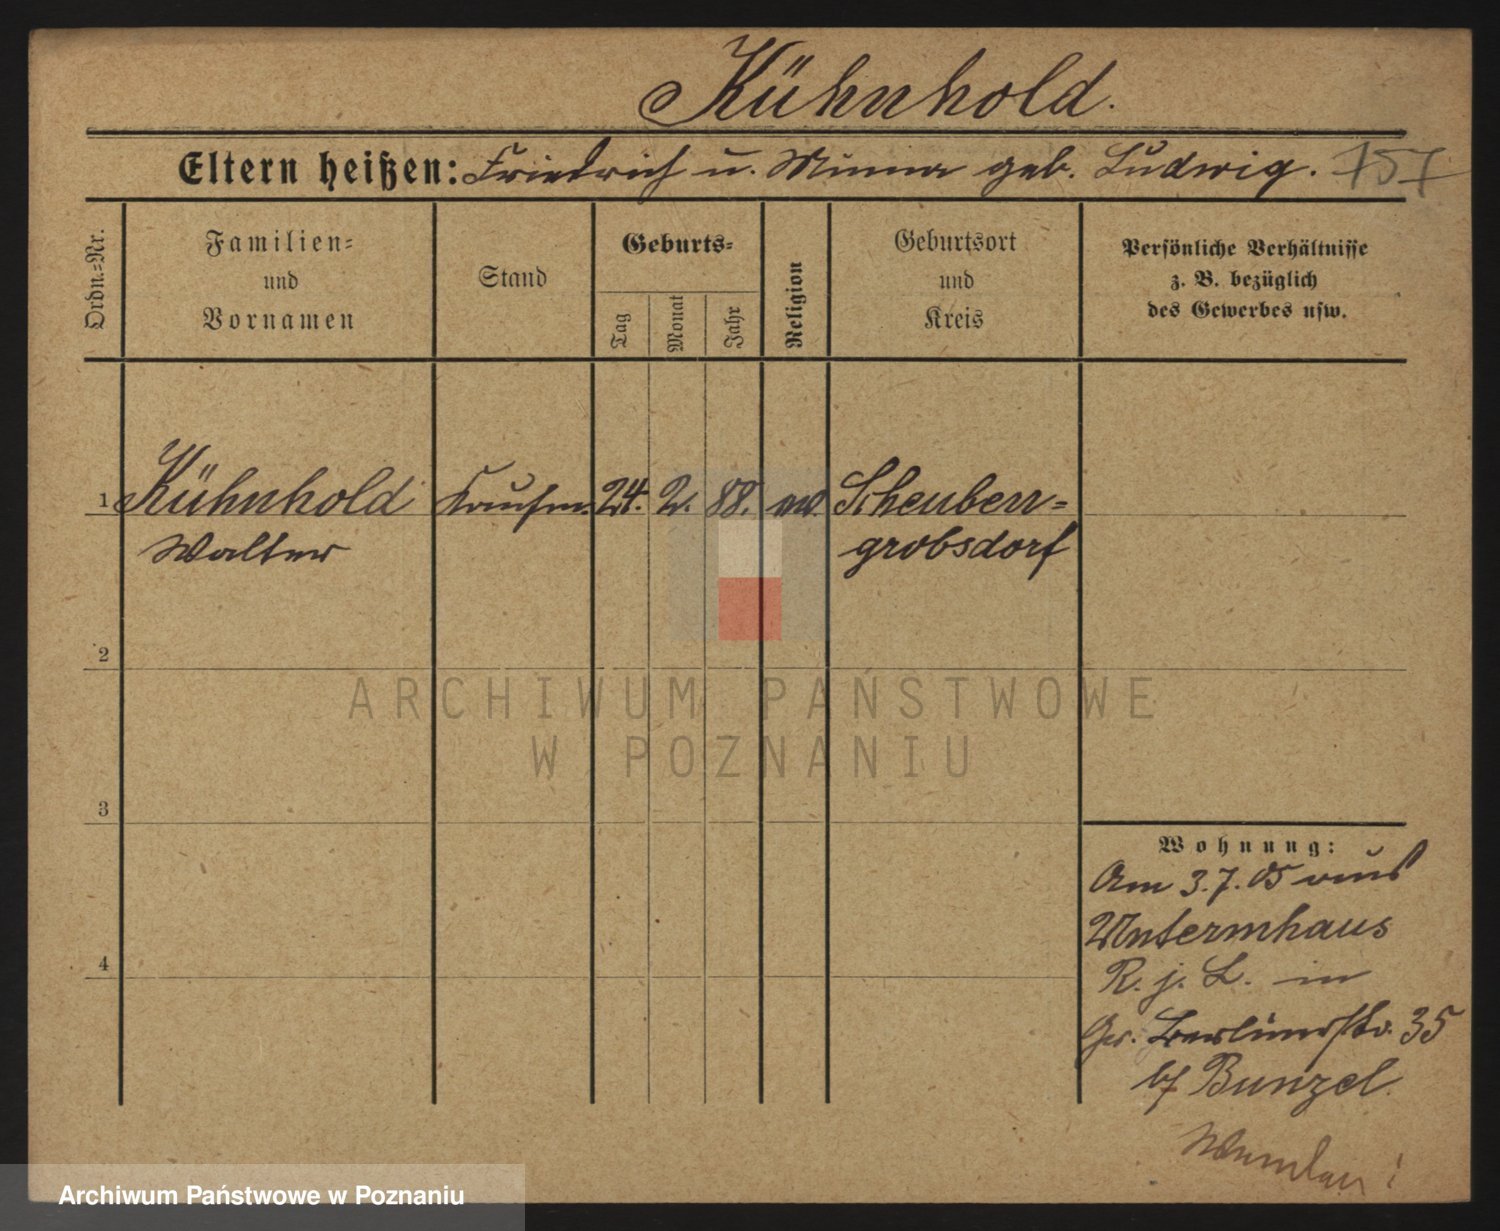 Kühnhold.
Eltern heißen: Friedrich u. Minna geb. Ludwig. 157
Ordn.-Nr.
Familien-
und
Vornamen
Stand
Geburts-
Tag
Monat
Jahr
Religion
Geburtsort
und
Kreis
Persönliche Verhältnisse
z. B. bezüglich
des Gewerbes usw.
1 Kühnhold Kaufm. 24. 2. 88. Scheuben-
Walter grobsdorf
2
ARCHIWUM PAŃSTWOWE
W POZNANIU
3
Wohnung:
Am 3.7.05 aus
Untermhaus
R. j. L. in
Gr. Berlinerstr. 35
bf Bunzel.
4
Archiwum Państwowe w Poznaniu